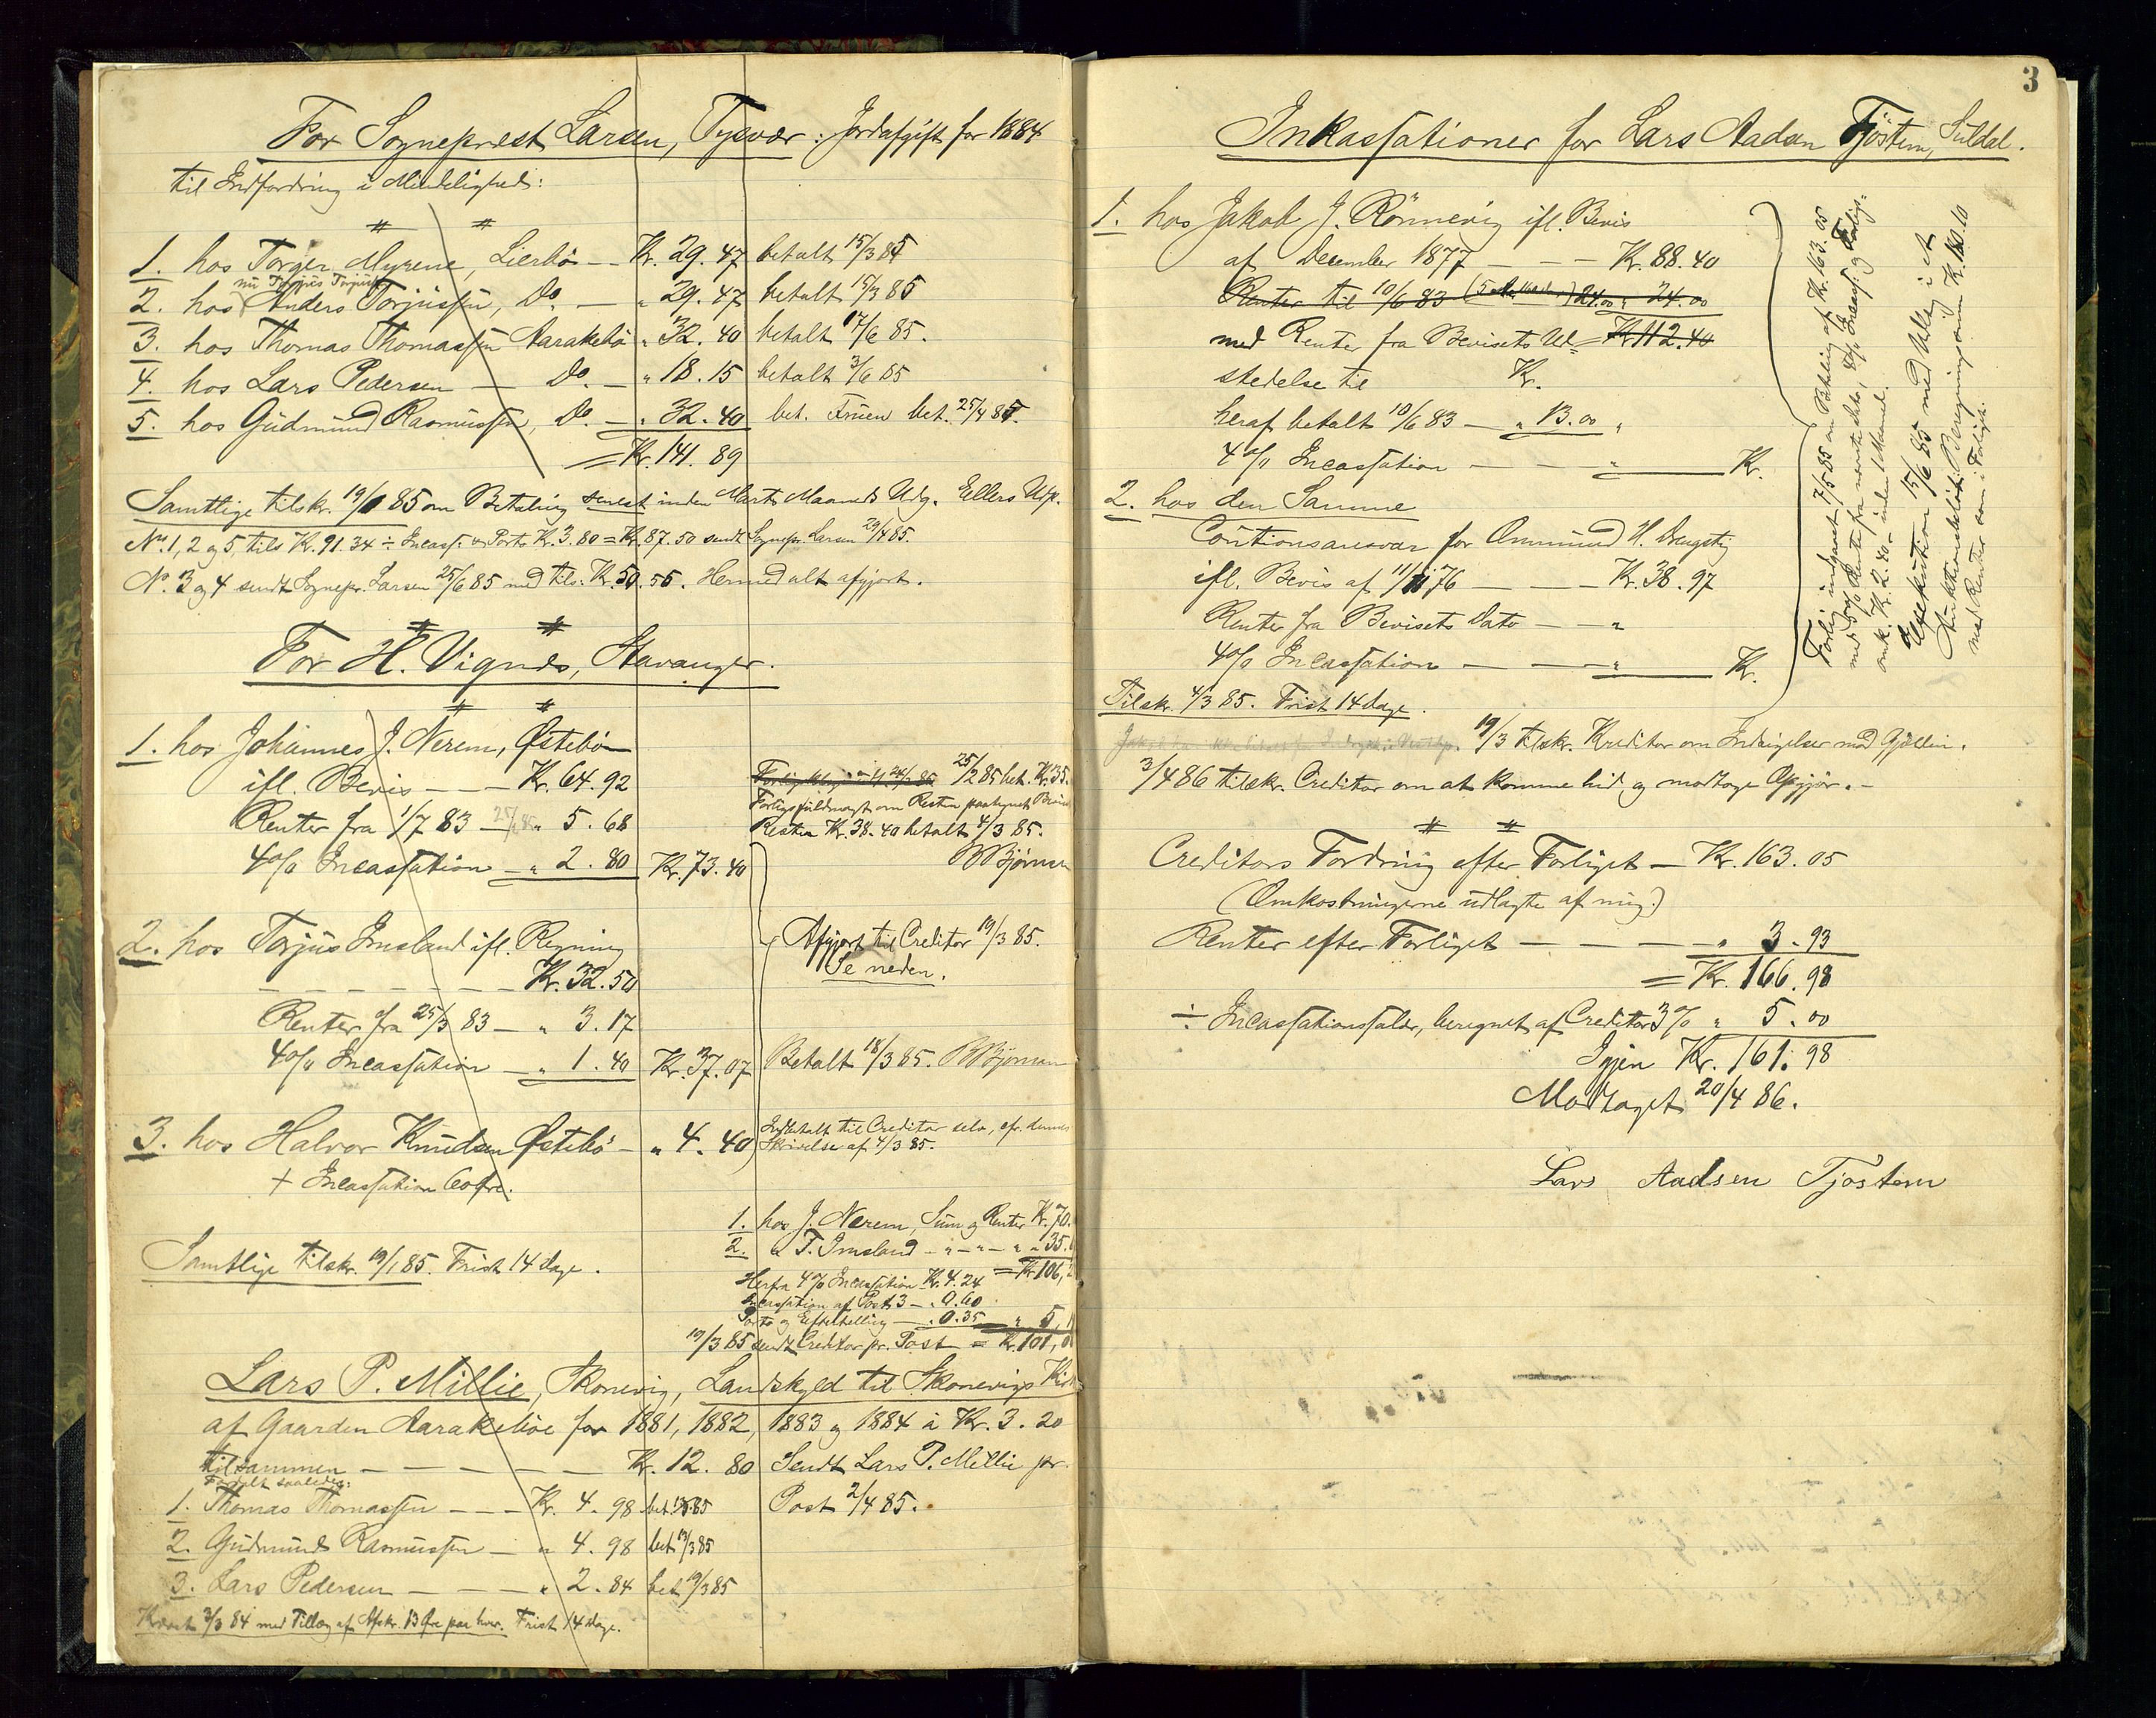 For Sognepræst Larsen, Tysvær: Jordafgift for 1884
til Indfordring i Mindelighed:
1. hos Torger Myrene, Lierbö — Kr. 29.47 betalt 15/3 85
nu Torjus Torjussen
2. hos Anders Torjussen, Do. — " 29.47 betalt 15/3 85
3. hos Thomas Thomassen Aarakebö " 32.40 betalt 17/6 85.
4. hos Lars Pedersen — Do. — " 18.15 betalt 3/6 85
5. hos Gudmund Rasmussen, Do. — " 32.40 bet. Fruen bet. 25/4 85.
= Kr. 141.89
Samtlige tilskr. 19/1 85 om Betaling senest inden Marts Maaneds Udg. Ellers Udp.
No. 1, 2 og 5 tils Kr. 91.34 ÷ Incass. & Porto Kr. 3.80 = Kr. 87.50 sendt Sognepr. Larsen 29/4 85.
No. 3 og 4 sendt Sognepr. Larsen 25/6 85 med tils. Kr. 50.55. Hermed alt afgjort.
For H. Vignes, Stavanger.
1. hos Johannes J. Nerem, Østebö
ifl. Bevis — — Kr. 64.92
25/2 85 bet. Kr. 35.
Renter fra 1/7 83 — " 5.68
Forligsfuldmagt om Resten paategnet Beviset
Resten Kr. 38.40 betalt 4/3 85.
4 0/0 Incassation — " 2.80 Kr. 73.40
2. hos Torjus Imsland ifl. Regning
Kr. 32.50
Afgjort til Creditor 19/3 85.
Se neden.
Renter fra 25/3 83 — " 3.17
4 0/0 Incassation — " 1.40 Kr. 37.07 Betalt 18/3 85.
3. hos Halvor Knudsen Østebö — " 4.40 Indbetalt til Creditor selv, cfr. dennes
Skrivelse af 4/3 85.
+ Incassation 60 öre.
1. hos J. Nerem, Sum og Renter Kr. 70.
2. " T. Imsland — " — " — " " 35.
= Kr. 106,
Samtlige tilskr. 19/1 85. Frist 14 dage.
Herfra 4 % Incassation Kr. 4.24
Incassation af Post 3 — " 0.60
Porto og Eftertælling — " 0.35 — " 5,
19/3 85 sendt Creditor pr. Post = Kr. 101,
Lars P. Millie, Skonevig, Landskyld til Skonevigs
af Gaarden Aarakeböe for 1881, 1882, 1883 og 1884 à Kr. 3.20
tilsammen — — — Kr. 12.80 Sendt Lars P. Millie pr.
Fordelt saaledes:
1. Thomas Thomassen — — Kr. 4.98 Post 2/4 85.
2. Gudmund Rasmussen — " 4.98 bet 19/3 85
3. Lars Pedersen — — — " 2.84 bet 19/3 85
Krævt 3/3 84 med Tillæg af Afskr. 13 Øre paa hver. Frist 14 dage.
3
Inkassationer for Lars Aadsen Tjöstem, Suldal.
1. hos Jakob J. Rönnevig ifl. Bevis
af December 1877 — — — Kr. 88.40
Renter til 10/6 83 24.00 " 24.00
med Renter fra Bevisets Ud= Kr. 112.40
stedelse til Kr.
heraf betalt 10/6 83 — " 13.00 "
4 0/0 Incassation — — " — Kr.
2. hos den Samme
Coutionsansvar for Ommund H.
ifl. Bevis af 11/11 76 — — — Kr. 38.97
Renter fra Bevisets Dato — — "
4 0/0 Incassation — — " — Kr.
Tilskr. 4/3 85. Frist 14 dage.
Forlig indgaaet 7/5 85 om Betaling af Kr. 163.05
med 5 0/0 Rente fra næste Dato, 4 0/0 Incass. og Forligs=
omk. Kr. 2.40 — inden 1 Maaned.
Execution 15/6 85 med Udlæg i et
med Renter som i Forliget.
19/3 tilskr. Kreditor om Indsigelser mod Gjælden.
3/4 86 tilskr. Creditor om at komme hid og modtage Opgjör. —
Creditors Fordring efter Forliget — Kr. 163.05
(Omkostningerne udlagte af mig.)
Renter efter Forliget — — — — " 3.93
= Kr. 166.98
÷ Incassationssalær, beregnet af Creditor 3 % " 5.00
Igjen Kr. 161.98
Modtaget 20/4 86.
Lars Aadsen Tjostem